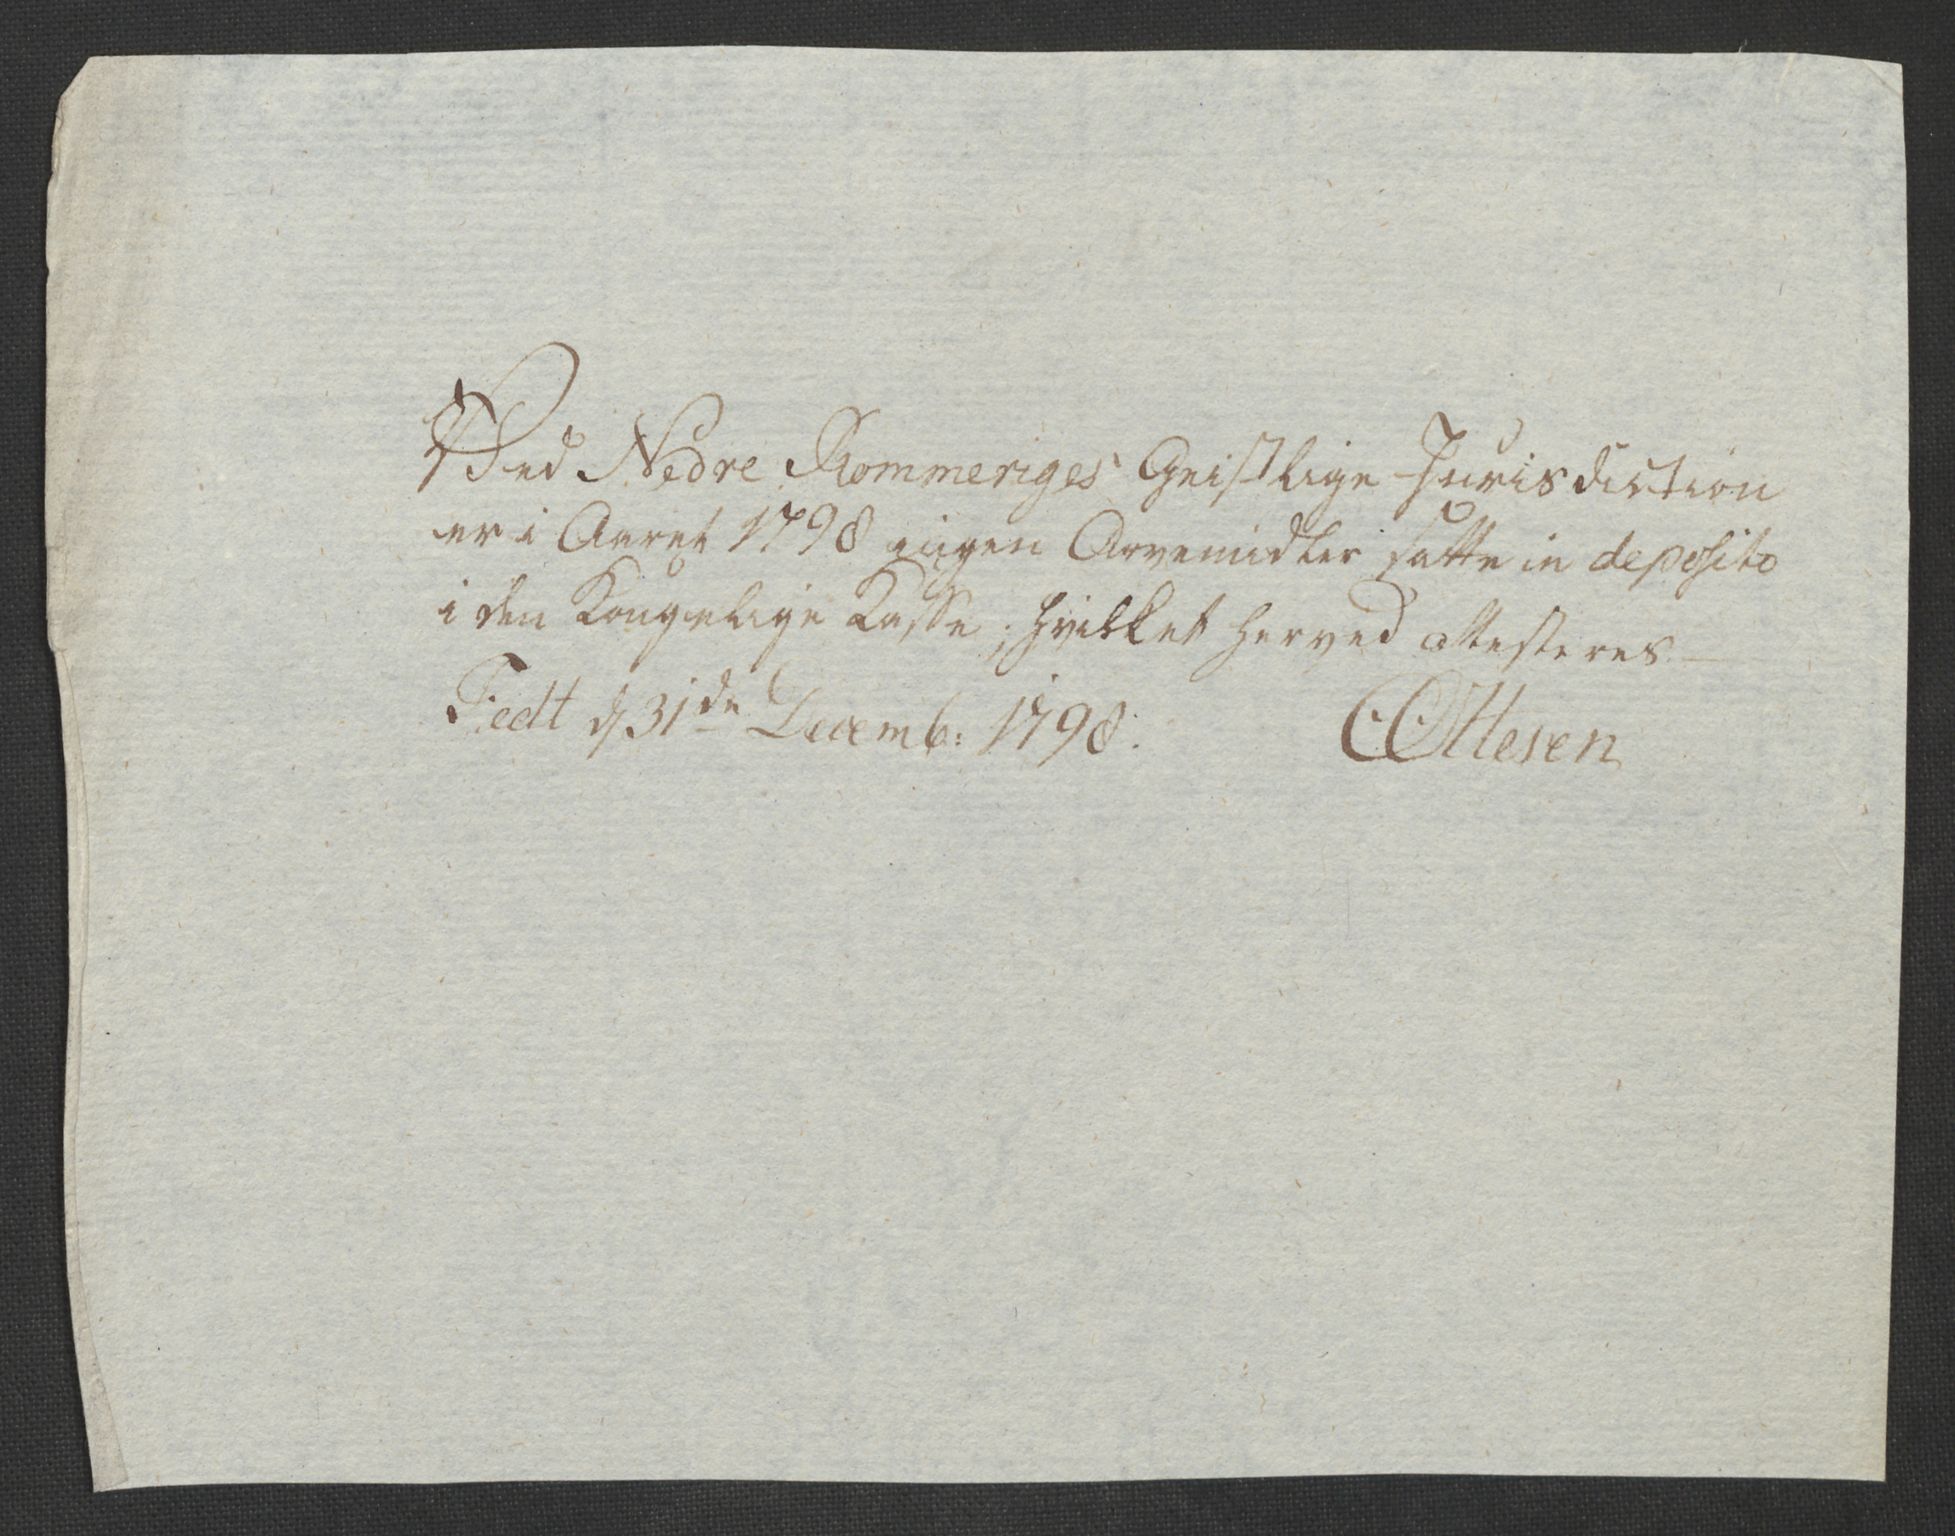 Ved Nedre Rommeriges Geistlige Jurisdiction
er i Aaret 1798 ingen Arvemidler satte in deposito
i den Kongelige Kasse; hvilket herved attesteres
Fedt d 31de Decemb: 1798. CCOttesen